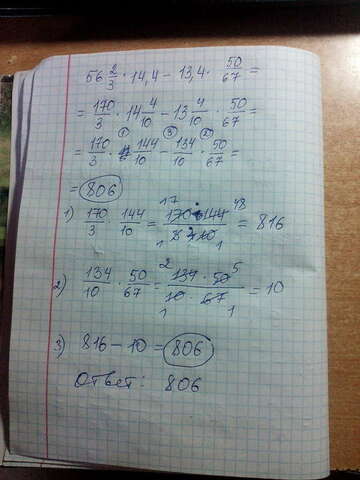 56 2/3 · 14,4 − 13,4 · 50/67 =
= 170/3 · 14 4/10 − 13 4/10 · 50/67 =
= 170/3 ·① 144/10 −③ 134/10 ·② 50/67 =
= 806
1) 170/3 · 144/10 = 170 · 144 / 3 · 10 = 816
17 48 1 1
2) 134/10 · 50/67 = 134 · 50 / 10 · 67 = 10
2 5 1 1
3) 816 − 10 = 806
Ответ: 806